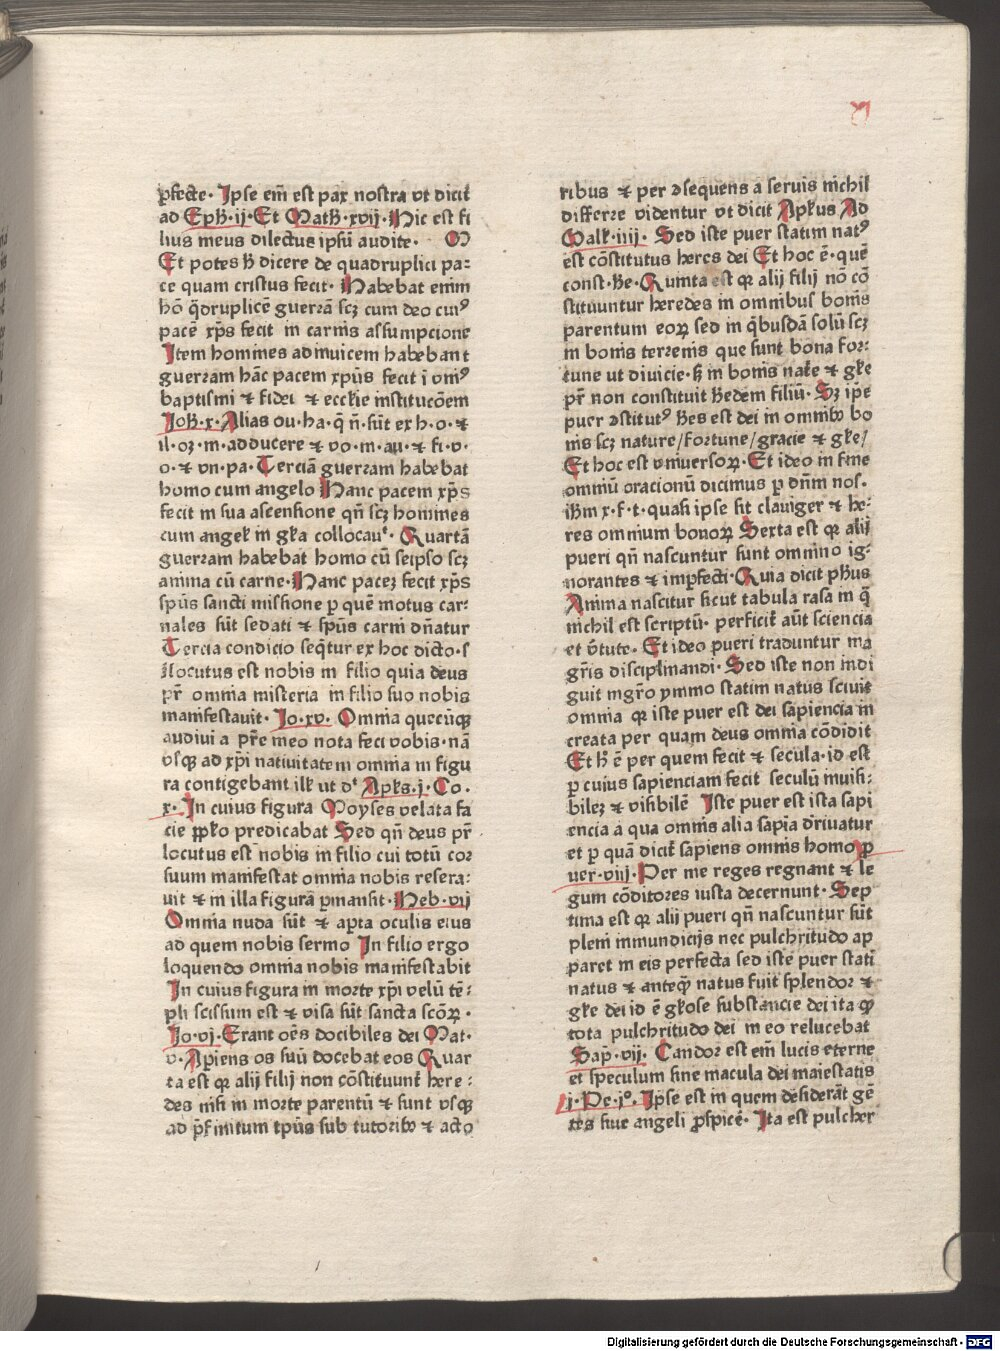 ꝑfecte· Ipse em̄ est pax nostra vt dicit
ad Epħ·ij·Et Matħ·xvij·Hic est fi
lius meus dilectus ipsū audite·
Et potes ħ dicere de quadruplici pa:
ce quam cristus fecit· Habebat enim
hō q̄druplicē guerrā scꝫ cum deo cuiꝰ
pacē xp̄s fecit in carnis assumpcione
Item homines ad inuicem habebant
guerram hāc pacem xpūs fecit ī om̄ꝰ
baptismi ⁊ fidei ⁊ eccƚie institucōem
Joħ·x·Alias ou·ha·q̄ n̄·sūt ex h·o·⁊
il·oꝫ·m·adducere ⁊ vo·m·au·⁊ fi·v·
o·⁊ vn·pa·Terciā guerram habebat
homo cum angelo Hanc pacem xp̄s
fecit in sua ascensione qn̄ scꝫ homines
cum angeƚ in gƚia collocauᵗ· Quartā
guerram habebat homo cū seipso scꝫ
anima cū carne·Hanc paceꝫ fecit xp̄s
spūs sancti missione ꝑ quē motus car:
nales sūt sedati ⁊ spūs carni dn̄atur
Tercia condicio seq̄tur ex hoc dicto·s
llocutus est nobis in filio quia deus
pr̄ omnia misteria in filio suo nobis
manifestauit· Jo·xv· Omnia quecūqꝫ
audiui a pr̄e meo nota feci vobis·nā
vsqꝫ ad xp̄i natiuitatem omnia in figu
ra contigebant ilƚ vt dᵗ Apƚs·j·Co·
x·In cuius figura Moyses velata fa
cie ꝓpƚo predicabat Sed qn̄ deus pr̄
locutus est nobis in filio cui totū cor
suum manifestat omnia nobis resera:
uit ⁊ in illa figurā ꝑmansit·Heb·vij
Omnia nuda sūt ⁊ apta oculis eius
ad quem nobis sermo In filio ergo
loquendo omnia nobis manifestabit
In cuius figura in morte xp̄i velū tē:
pli scissum est ⁊ visa sūt sancta scōꝝ·
Jo·vj·Erant oēs docibiles dei Mat·
v·Apiens os suū docebat eos Quar
ta est ꝙ alij filij non cōstituunt here:
des nisi in morte parentū ⁊ sunt vsqꝫ
ad p̄finitum tp̄us sub tutoribꝰ ⁊ acto
ribus ⁊ per ↄsequens a seruis nichil
differre videntur vt dicit Apƚus Ad
Galƚ·iiij· Sed iste puer statim natꝰ
est cōstitutus heres dei Et hoc ē·quē
const·ħe·Quinta est ꝙ alij filij nō cō
stituuntur heredes in omnibus bonis
parentum eoꝝ sed in q̄busdā solū scꝫ
in bonis terrenis que sunt bona for:
tune ut diuicie·ß in bonis naƚe ⁊ gƚe
pr̄ non constituit ħedem filiū·Sꝫ ip̄e
puer ↄstitutꝰ ħes est dei in omnibꝰ bo
nis scꝫ nature/fortune/gracie ⁊ gƚe/
Et hoc est vniuersoꝝ·Et ideo in fine
omniū oracionū dicimus ꝑ dn̄m nos·
iħm x·f·t·quasi ipse sit clauiger ⁊ he:
res omnium bonoꝝ Sexta est ꝙ alij
pueri qn̄ nascuntur sunt omnino ig:
norantes ⁊ imꝑfecti·Quia dicit pħus
Anima nascitur sicut tabula rasa in q̄
nichil est scriptū· perficiƚ aūt sciencia
et v̄tute· Et ideo pueri traduntur ma
gr̄is disciplinandi·Sed iste non indi
guit mgr̄o ymmo statim natus sciuit
omnia ꝙ iste puer est dei sapiencia in
creata per quam deus omnia cōdidit
Et ħ ē per quem fecit ⁊ secula·id est
ꝑ cuius sapienciam fecit seculū inuisi:
bileꝫ ⁊ visibilē Iste puer est ista sapi
encia a qua omnis alia sapīa d̄riuatur
et ꝑ quā diciƚ sapiens omnis homo ꝓ
uer·viij·Per me reges regnant ⁊ le
gum cōditores iusta decernunt·Sep
tima est ꝙ alij pueri qn̄ nascuntur sūt
pleni inmundicijs nec pulchritudo ap
paret in eis perfecta sed iste puer stati
natus ⁊ anteqꝫ natus fuit splendor ⁊
gƚe dei id ē gƚose substancie dei ita ꝙ
tota pulchritudo dei in eo relucebat
Sap̄·vij· Candor est em̄ lucis eterne
et speculum sine macula dei maiestatis
j·Pe·jº·Ipse est in quem desiderāt gē
tes siue angeli ꝓspicē·Ita est pulcher
Digitalisierung gefördert durch die Deutsche Forschungsgemeinschaft · DFG